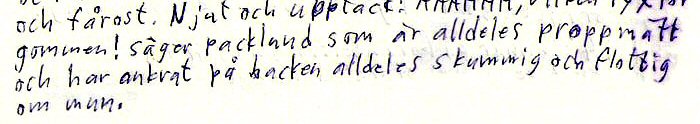 och fårost. Njut och upptäck!
gommen! säger packland som är alldeles proppmätt
och har ankrat på backen alldeles skummig och flottig
om mun.